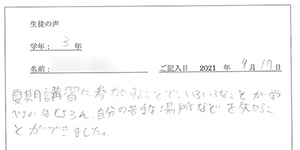 生徒の声
学年： 3 年
名前： ご記入日 2021 年 9 月 17 日
夏期講習に参加することで、いろいろなことが学
べたのはもちろん、自分の苦手な場所などを知るこ
とができました。